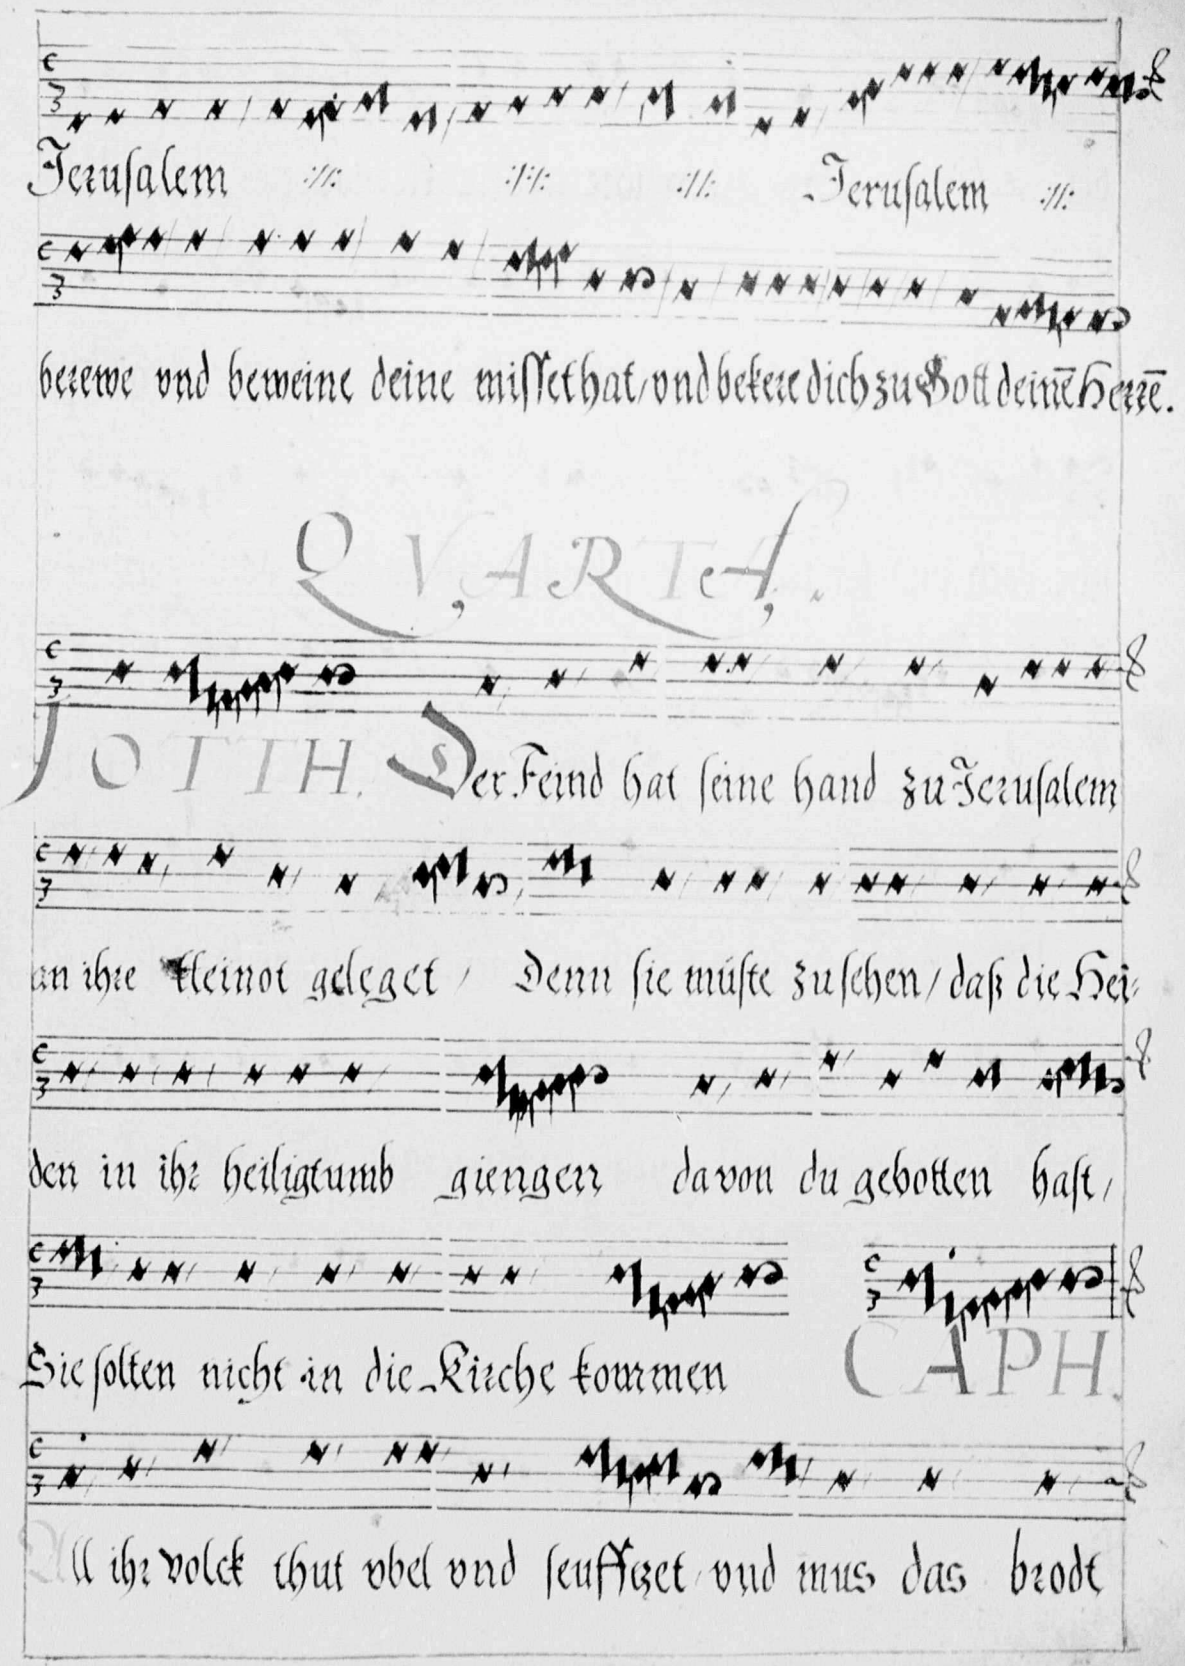 Jerusalem :||: :||: :||: Jerusalem :||:
berewe vnd beweine deine missethat/ vnd bekere dich zu Gott deinē Herrē.
QVARTA.
JOTTH. Der Feind hat seine hand zu Jerusalem
an ihre kleinot geleget / Denn sie müste zusehen/ daß die Hei-
den in ihr heiligtumb giengen davon du gebotten hast/
Sie solten nicht in die Kirche kommen CAPH.
All ihr volck thut vbel vnd seufftzet/ vnd mus das brodt